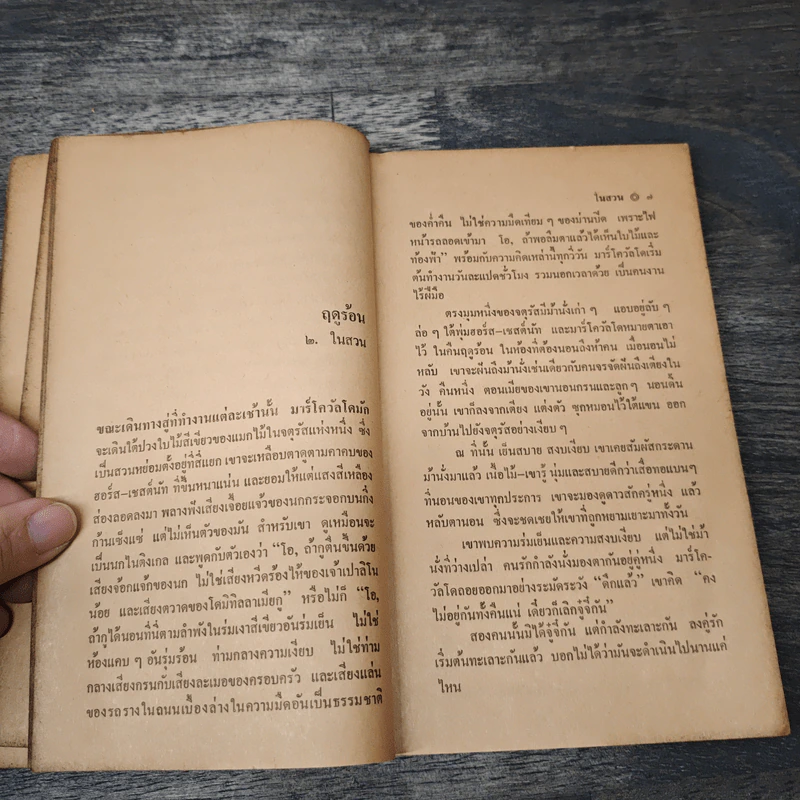 ฤดูร้อน
๒. ในสวน
ขณะเดินทางสู่ที่ทำงานแต่ละเช้านั้น มาร์โควัลโดมัก
จะเดินใต้ปวงใบไม้สีเขียวของแมกไม้ในจตุรัสแห่งหนึ่ง ซึ่ง
เป็นสวนหย่อมตั้งอยู่ที่สี่แยก เขาจะเหลือบตาดูตามคาคบของ
ฮอร์ส-เชสต์นัท ที่ขึ้นหนาแน่น และยอมให้แต่แสงสีเหลือง
ส่องลอดลงมา พลางฟังเสียงเจื้อยแจ้วของนกกระจอกบนกิ่ง
ก้านเซ็งแซ่ แต่ไม่เห็นตัวของมัน สำหรับเขา ดูเหมือนจะ
เป็นนกไนติงเกล และพูดกับตัวเองว่า “โอ, ถ้ากูตื่นขึ้นด้วย
เสียงจ้อกแจ้กของนก ไม่ใช่เสียงหวีดร้องไห้ของเจ้าเปาลิโน
น้อย และเสียงตวาดของโดมิทิลลาเมียกู” หรือไม่ก็ “โอ,
ถ้ากูได้นอนที่นี่ตามลำพังในร่มเงาสีเขียวอันร่มเย็น ไม่ใช่
ห้องแคบ ๆ อันรุ่มร้อน ท่ามกลางความเงียบ ไม่ใช่ท่าม
กลางเสียงกรนกับเสียงละเมอของครอบครัว และเสียงแล่น
ของรถรางในถนนเบื้องล่างในความมืดอันเป็นธรรมชาติ
ในสวน ๗
ของค่ำคืน ไม่ใช่ความมืดเทียม ๆ ของม่านปิด เพราะไฟ
หน้ารถลอดเข้ามา โอ, ถ้าพอลืมตาแล้วได้เห็นใบไม้และ
ท้องฟ้า” พร้อมกับความคิดเหล่านี้ทุกวี่วัน มาร์โควัลโดเริ่ม
ต้นทำงานวันละแปดชั่วโมง รวมนอกเวลาด้วย เป็นคนงาน
ไร้ฝีมือ
ตรงมุมหนึ่งของจตุรัสมีม้านั่งเก่า ๆ แอบอยู่ลับ ๆ
ล่อ ๆ ใต้พุ่มฮอร์ส-เชสต์นัท และมาร์โควัลโดหมายตาเอา
ไว้ ในคืนฤดูร้อน ในห้องที่ต้องนอนถึงห้าคน เมื่อนอนไม่
หลับ เขาจะฝันถึงม้านั่งเช่นเดียวกับคนจรจัดฝันถึงเตียงใน
วัง คืนหนึ่ง ตอนเมียของเขานอนกรนและลูก ๆ นอนดิ้น
อยู่นั้น เขาก็ลงจากเตียง แต่งตัว ซุกหมอนไว้ใต้แขน ออก
จากบ้านไปยังจตุรัสอย่างเงียบ ๆ
ณ ที่นั้น เย็นสบาย สงบเงียบ เขาเคยสัมผัสกระดาน
ม้านั่งมาแล้ว เนื้อไม้-เขารู้ นุ่มและสบายดีกว่าเสื่อทอแบน ๆ
ที่นอนของเขาทุกประการ เขาจะมองดูดาวสักครู่หนึ่ง แล้ว
หลับตานอน ซึ่งจะชดเชยให้เขาที่ถูกเหยาะเย้ยมาทั้งวัน
เขาพบความร่มเย็นและความสงบเงียบ แต่ไม่ใช่ม้า
นั่งที่ว่างเปล่า คนรักกำลังนั่งมองตากันอยู่คู่หนึ่ง มาร์โค-
วัลโดถอยออกมาอย่างระมัดระวัง “ดึกแล้ว” เขาคิด “คง
ไม่อยู่กันทั้งคืนแน่ เดี๋ยวก็เลิกจู๋จี๋กัน”
สองคนนั้นมิได้จู๋จี๋กัน แต่กำลังทะเลาะกัน ลงคู่รัก
เริ่มต้นทะเลาะกันแล้ว บอกไม่ได้ว่ามันจะดำเนินไปนานแค่
ไหน